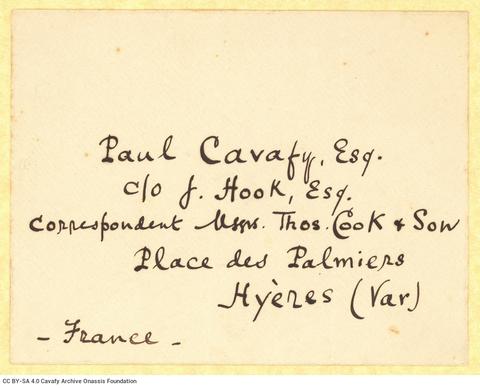 Paul Cavafy, Esq.
c/o J. Hook, Esq.
Correspondent Messrs. Thos. Cook & Son
Place des Palmiers
Hyères (Var)
- France -
CC BY-SA 4.0 Cavafy Archive Onassis Foundation